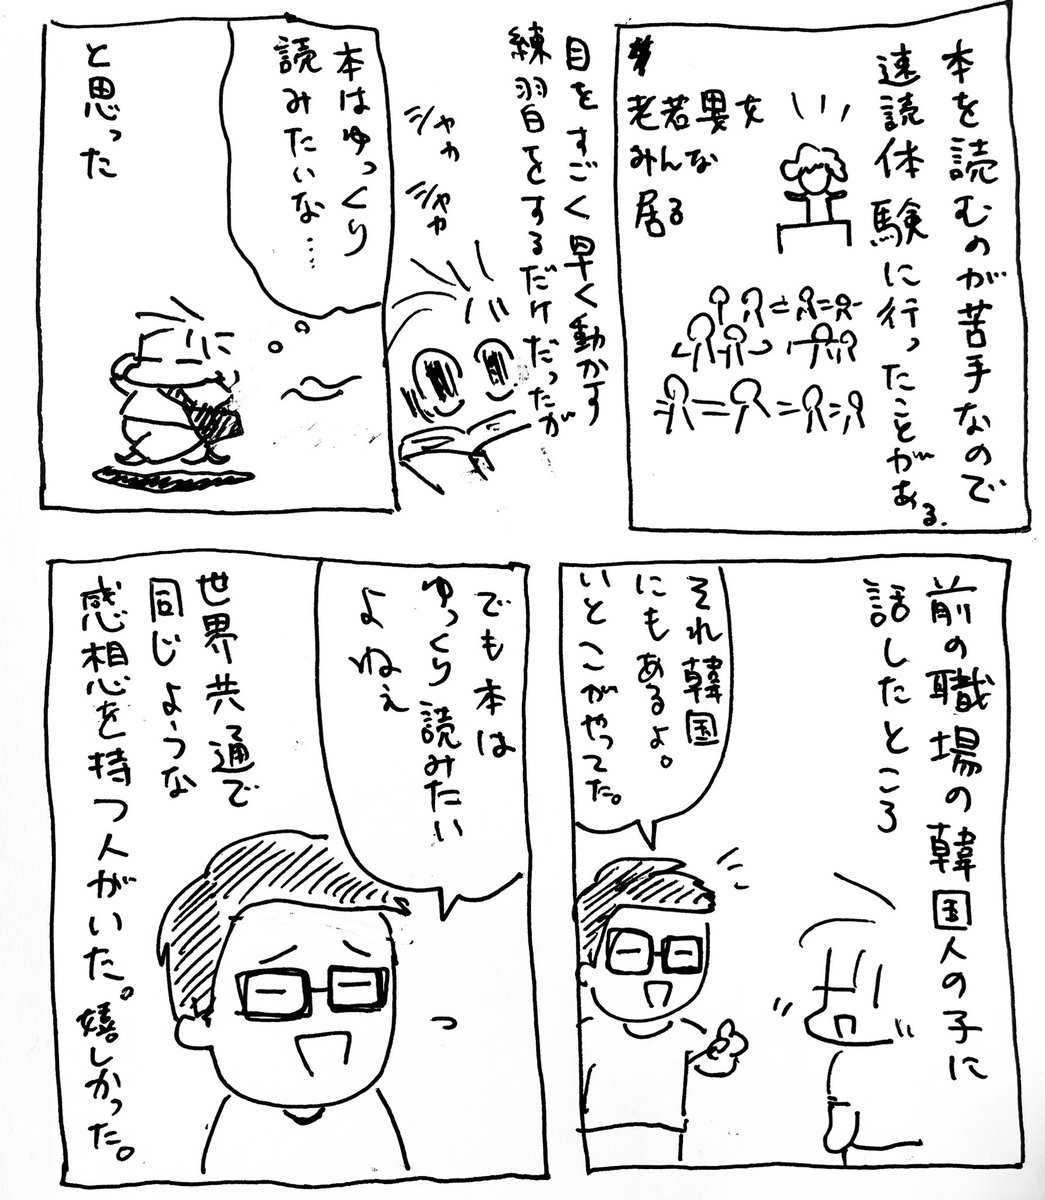 本を読むのが苦手なので
速読体験に行ったことがある.
老若男女
みんな
居る
目をすごく早く動かす
練習をするだけだったが
シャカ
シャカ
本はゆっくり
読みたいな…
と思った
前の職場の韓国人の子に
話したところ
それ韓国
にもあるよ。
いとこがやってた。
でも本は
ゆっくり読みたい
よねぇ
世界共通で
同じような
感想を持つ人がいた。嬉しかった。